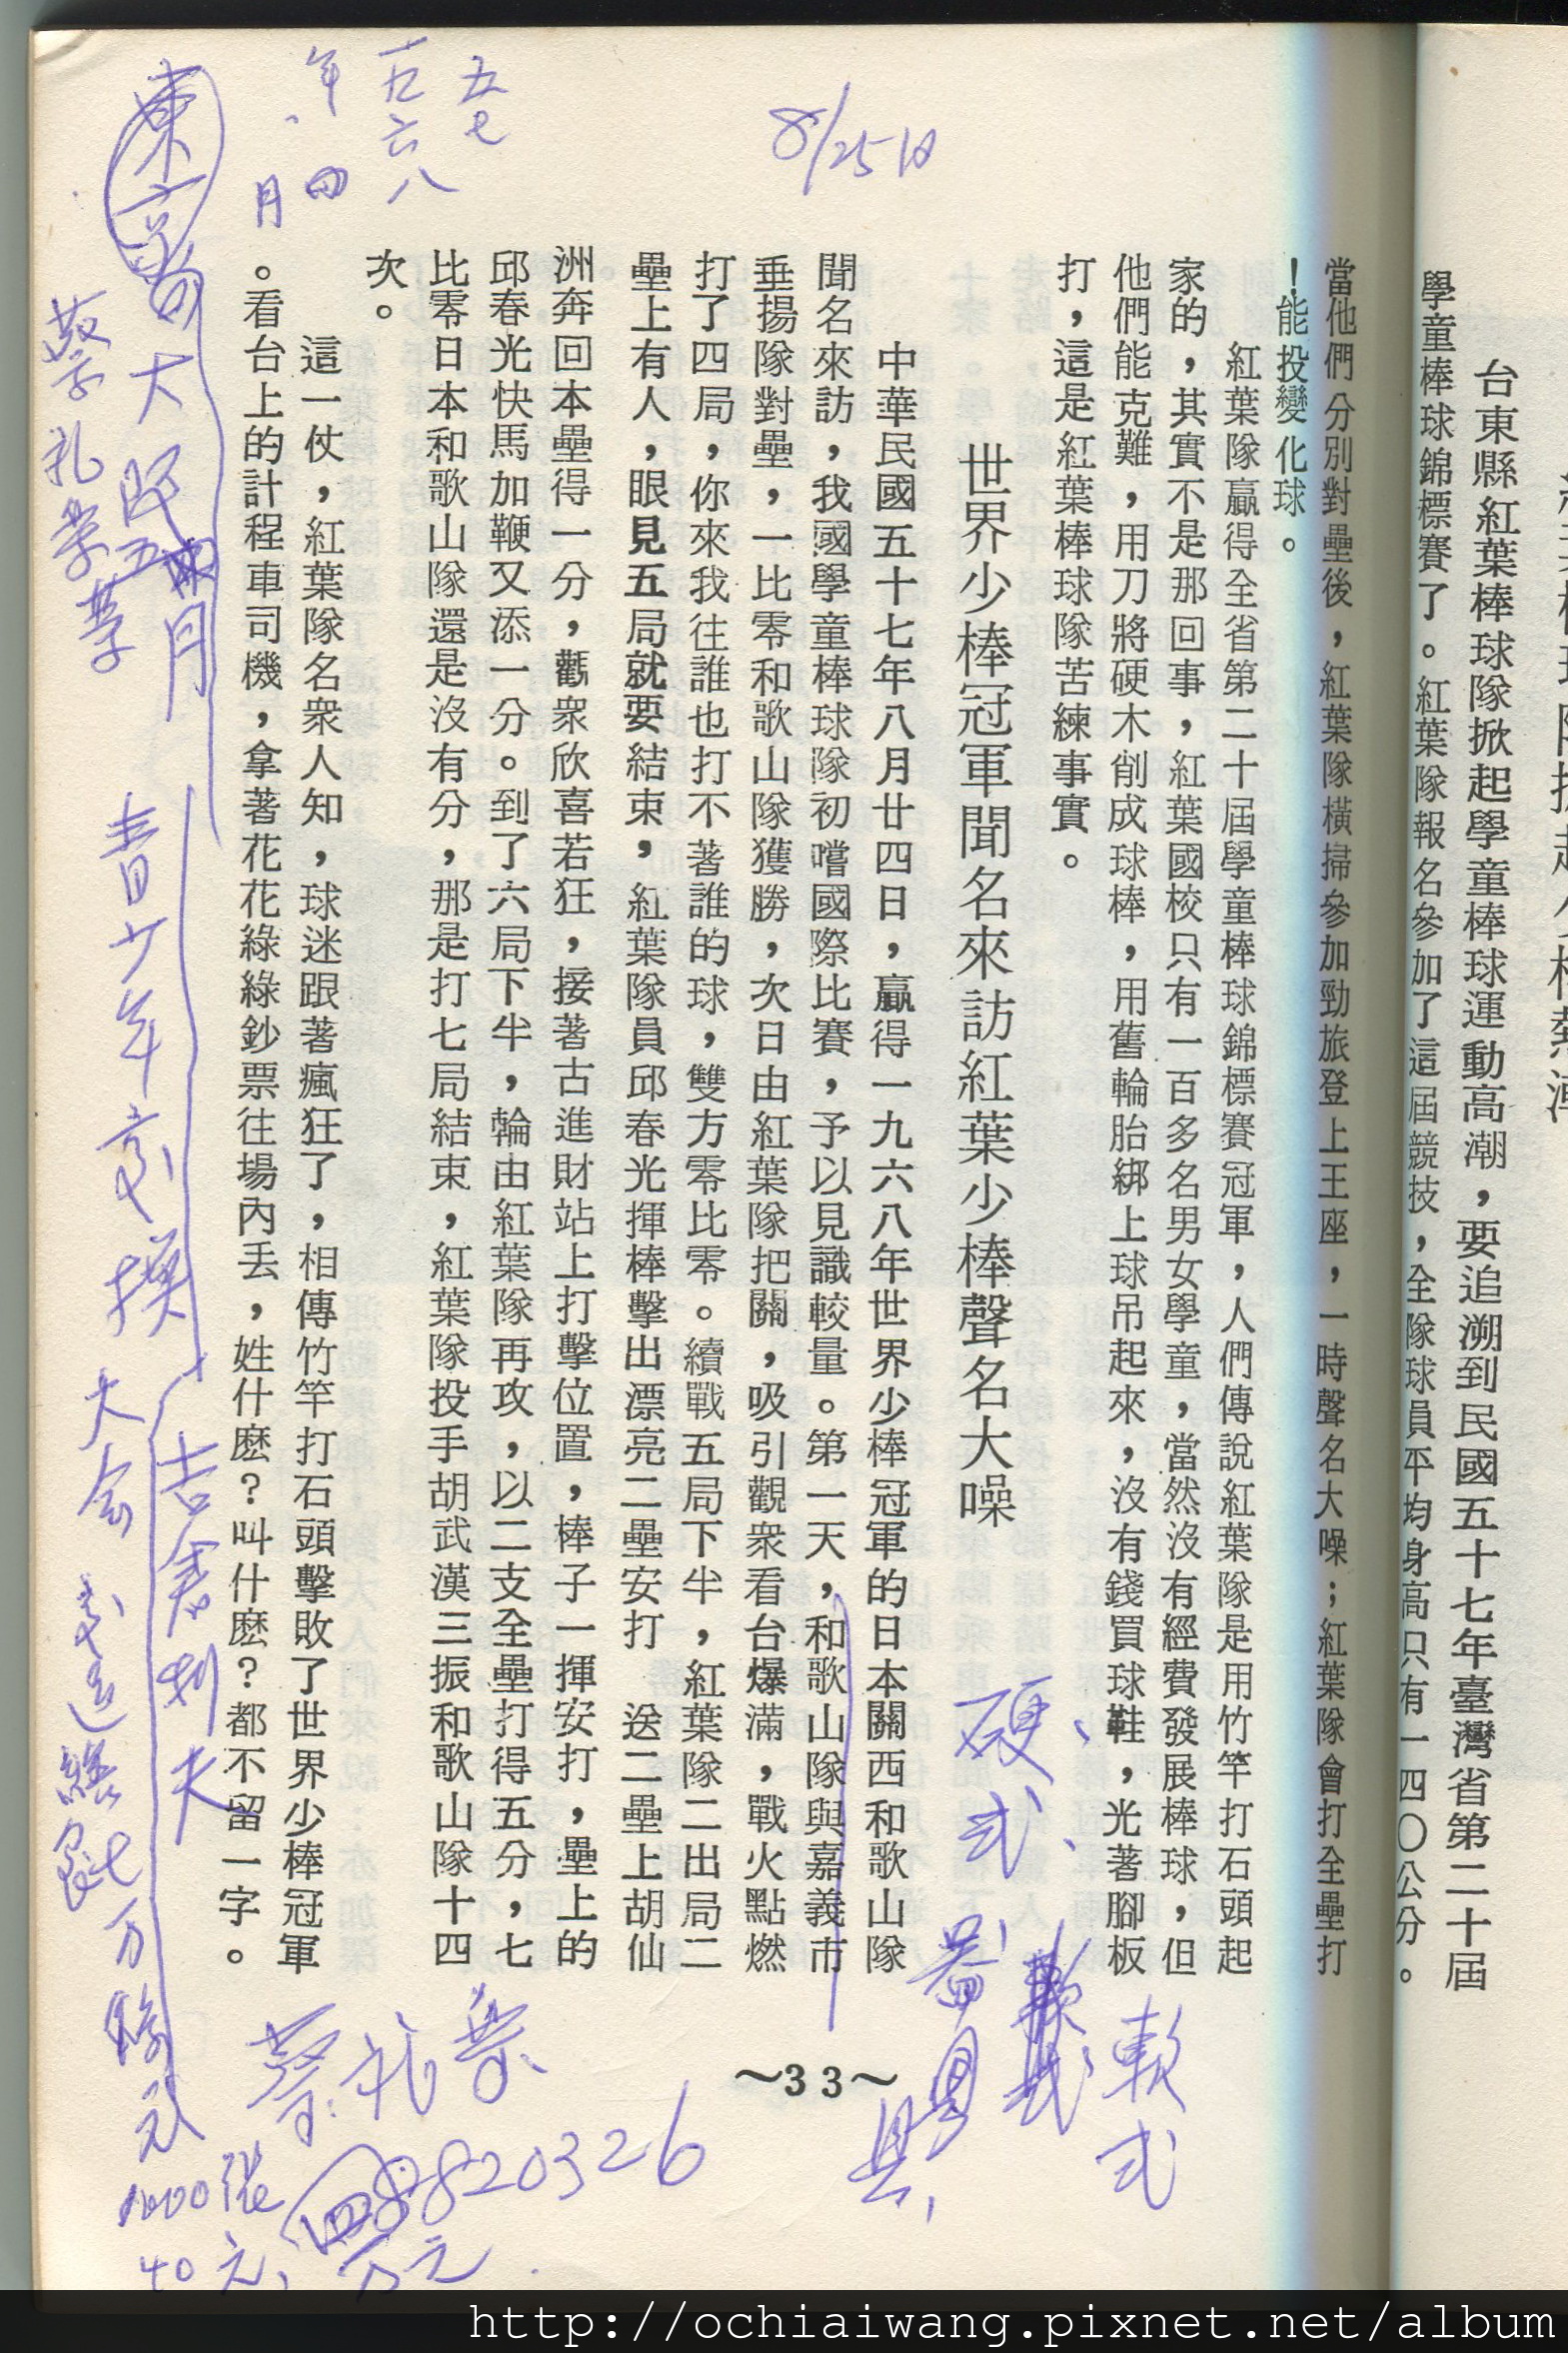 台東縣紅葉棒球隊掀起學童棒球運動高潮，要追溯到民國五十七年臺灣省第二十屆
學童棒球錦標賽了。紅葉隊報名參加了這屆競技，全隊球員平均身高只有一四〇公分。
當他們分別對壘後，紅葉隊橫掃參加勁旅登上王座，一時聲名大噪；紅葉隊會打全壘打
！能投變化球。
紅葉隊贏得全省第二十屆學童棒球錦標賽冠軍，人們傳說紅葉隊是用竹竿打石頭起
家的，其實不是那回事，紅葉國校只有一百多名男女學童，當然沒有經費發展棒球，但
他們能克難，用刀將硬木削成球棒，用舊輪胎綁上球吊起來，沒有錢買球鞋，光著腳板
打，這是紅葉棒球隊苦練事實。
世界少棒冠軍聞名來訪紅葉少棒聲名大噪
中華民國五十七年八月廿四日，贏得一九六八年世界少棒冠軍的日本關西和歌山隊
聞名來訪，我國學童棒球隊初嚐國際比賽，予以見識較量。第一天，和歌山隊與嘉義市
垂揚隊對壘，一比零和歌山隊獲勝，次日由紅葉隊把關，吸引觀衆看台爆滿，戰火點燃
打了四局，你來我往誰也打不著誰的球，雙方零比零。續戰五局下半，紅葉隊二出局二
壘上有人，眼見五局就要結束，紅葉隊員邱春光揮棒擊出漂亮二壘安打 送二壘上胡仙
洲奔回本壘得一分，觀衆欣喜若狂，接著古進財站上打擊位置，棒子一揮安打，壘上的
邱春光快馬加鞭又添一分。到了六局下半，輪由紅葉隊再攻，以二支全壘打得五分，七
比零日本和歌山隊還是沒有分，那是打七局結束，紅葉隊投手胡武漢三振和歌山隊十四
次。
這一仗，紅葉隊名衆人知，球迷跟著瘋狂了，相傳竹竿打石頭擊敗了世界少棒冠軍
。看台上的計程車司機，拿著花花綠綠鈔票往場內丟，姓什麽？叫什麽？都不留一字。
～33～
8/25日
五七
一九六八
年
四
月
硬式
軟式
大會
青少年
蔡
8820326
1000張
40元
四万元
http://ochiaiwang.pixnet.net/album